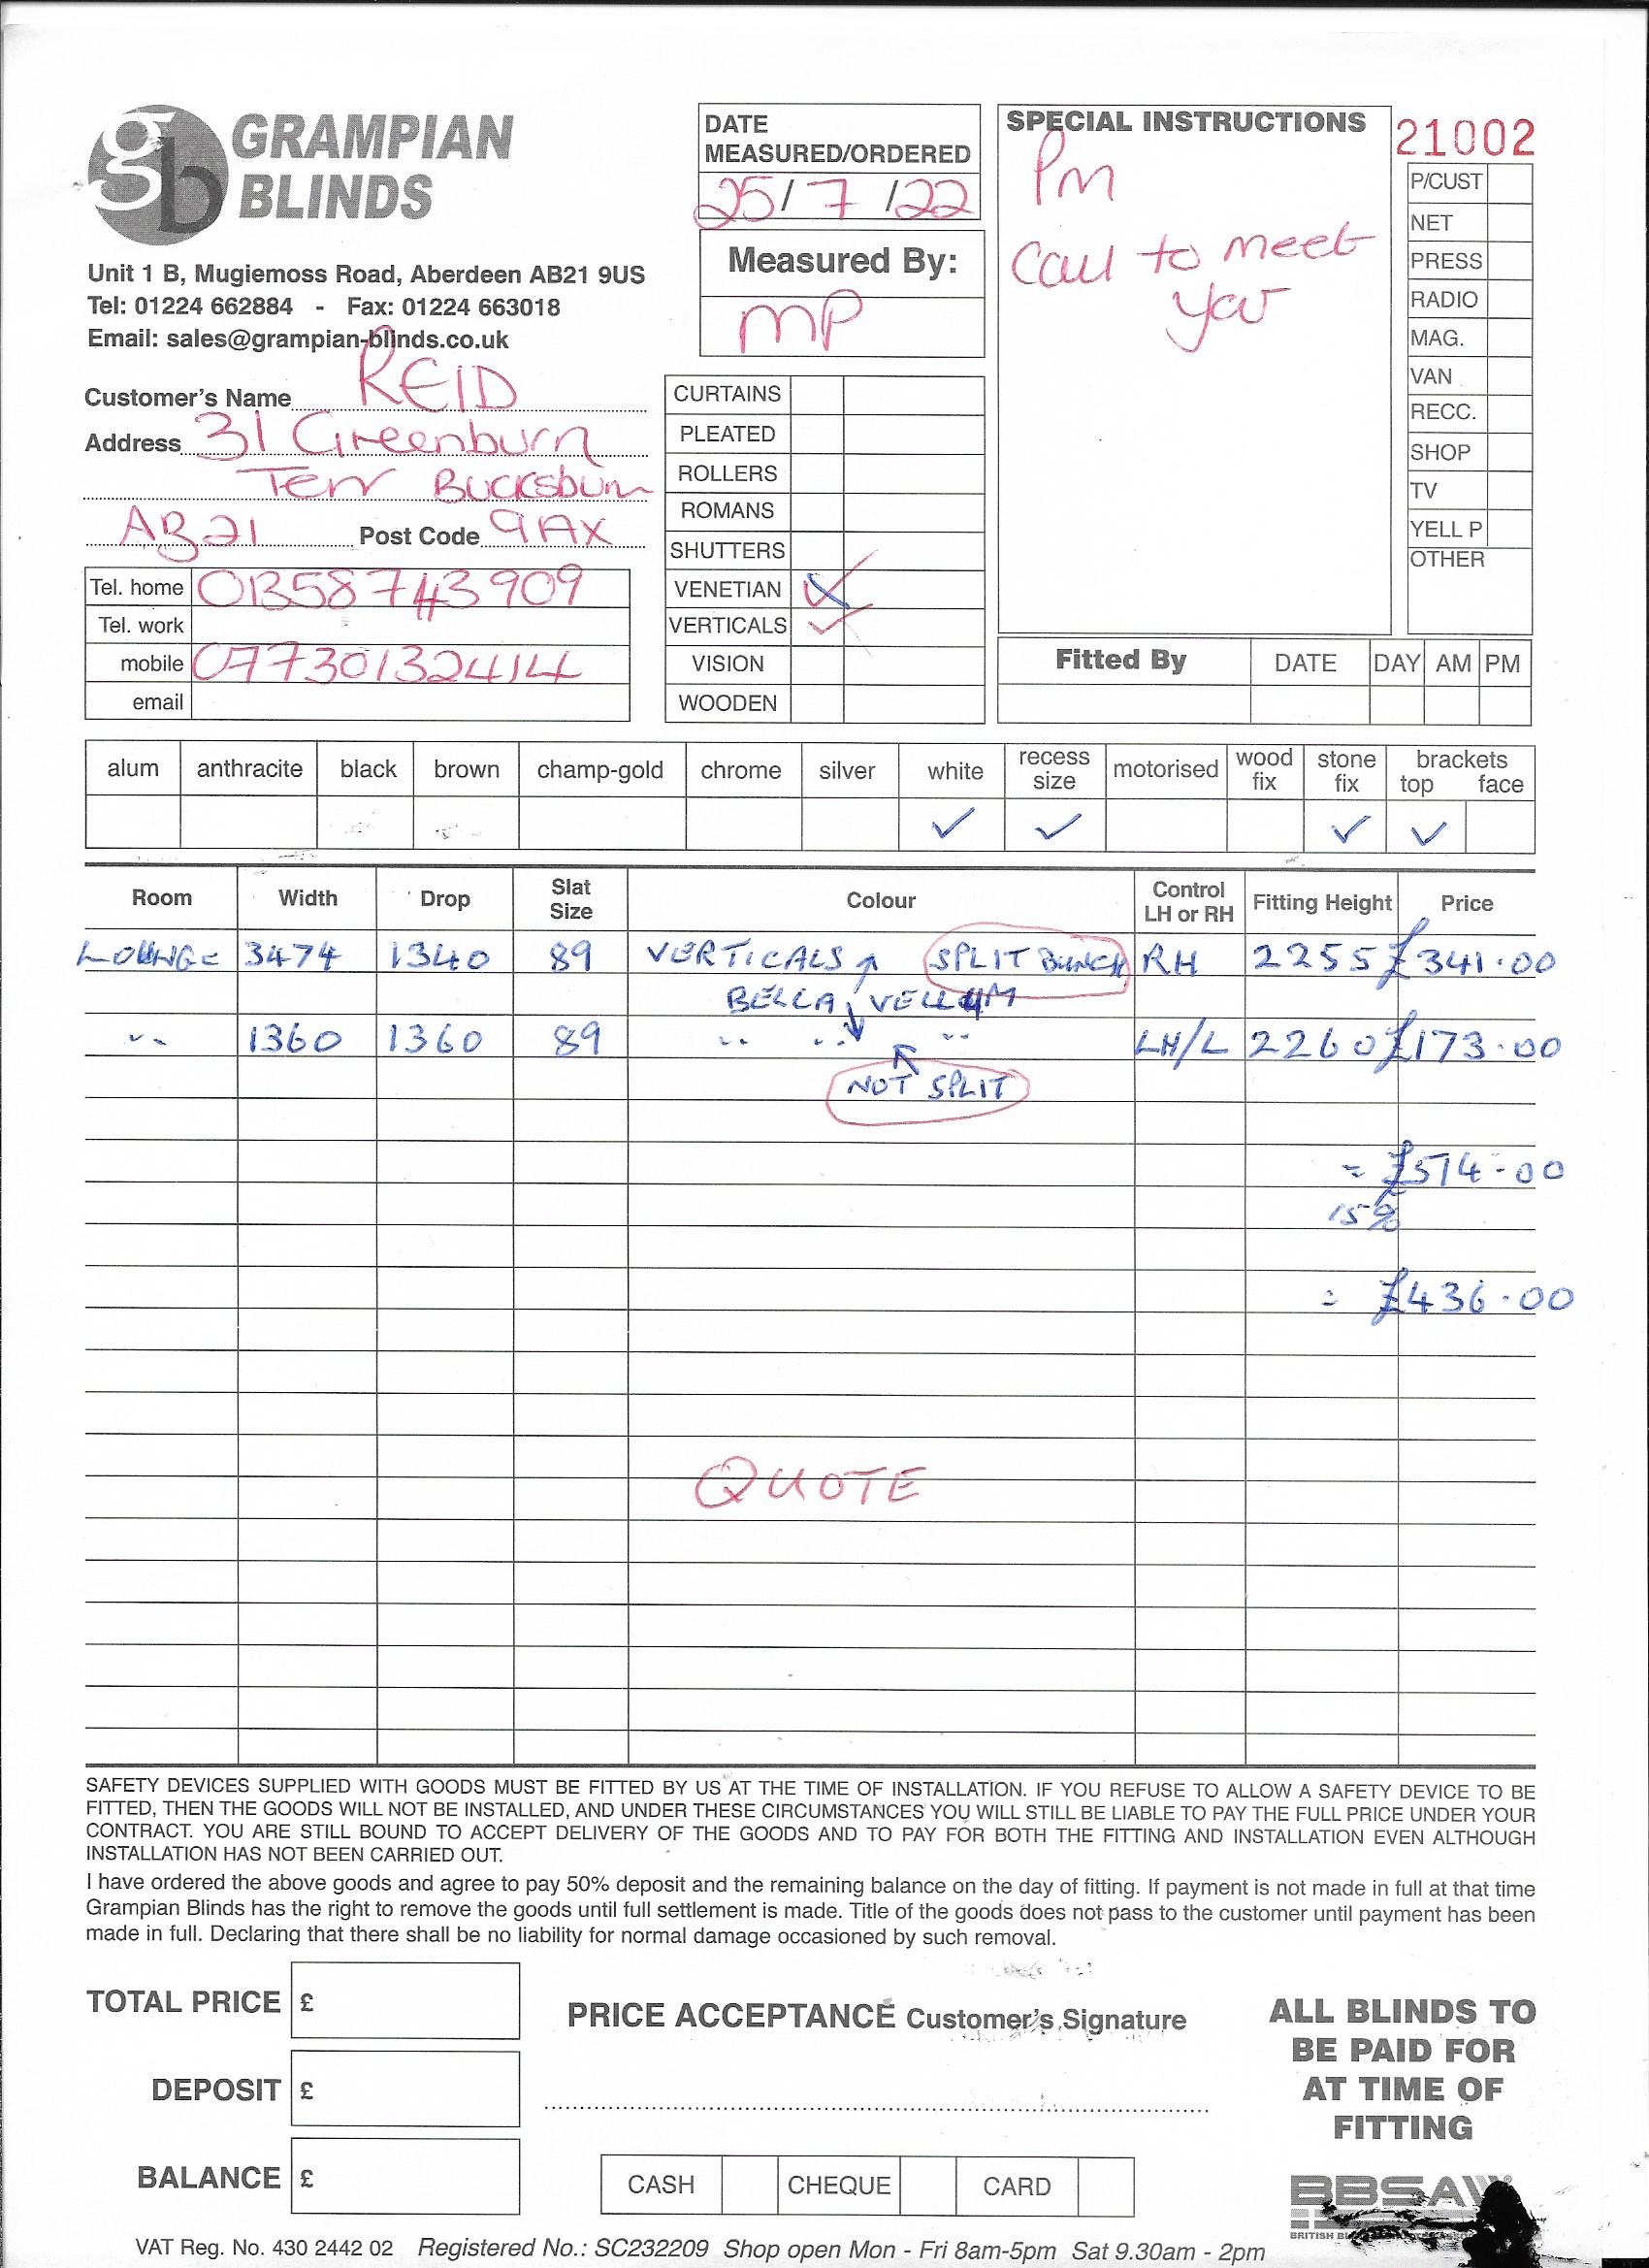 gb GRAMPIAN
BLINDS
Unit 1 B, Mugiemoss Road, Aberdeen AB21 9US
Tel: 01224 662884 - Fax: 01224 663018
Email: sales@grampian-blinds.co.uk
Customer's Name REID
Address 31 Greenburn
Terr Bucksburn
AB21 Post Code 9AX
Tel. home 01358 743909
Tel. work
mobile 07730132414
email
DATE
MEASURED/ORDERED
25/7/22
Measured By:
MP
CURTAINS
PLEATED
ROLLERS
ROMANS
SHUTTERS
VENETIAN
VERTICALS ✓
VISION
WOODEN
SPECIAL INSTRUCTIONS
PM
Call to meet
you
21002
P/CUST
NET
PRESS
RADIO
MAG.
VAN
RECC.
SHOP
TV
YELL P
OTHER
Fitted By DATE DAY AM PM
alum anthracite black brown champ-gold chrome silver white recess size motorised wood fix stone fix brackets top face
✓ ✓ ✓ ✓
Room Width Drop Slat Size Colour Control LH or RH Fitting Height Price
LOUNGE 3474 1340 89 VERTICALS SPLIT BUNCH RH 2255 £341.00
BELLA VELLUM
" 1360 1360 89 " " " LH/L 2260 £173.00
NOT SPLIT
= £514-00
15%
= £436.00
QUOTE
SAFETY DEVICES SUPPLIED WITH GOODS MUST BE FITTED BY US AT THE TIME OF INSTALLATION. IF YOU REFUSE TO ALLOW A SAFETY DEVICE TO BE
FITTED, THEN THE GOODS WILL NOT BE INSTALLED, AND UNDER THESE CIRCUMSTANCES YOU WILL STILL BE LIABLE TO PAY THE FULL PRICE UNDER YOUR
CONTRACT. YOU ARE STILL BOUND TO ACCEPT DELIVERY OF THE GOODS AND TO PAY FOR BOTH THE FITTING AND INSTALLATION EVEN ALTHOUGH
INSTALLATION HAS NOT BEEN CARRIED OUT.
I have ordered the above goods and agree to pay 50% deposit and the remaining balance on the day of fitting. If payment is not made in full at that time
Grampian Blinds has the right to remove the goods until full settlement is made. Title of the goods does not pass to the customer until payment has been
made in full. Declaring that there shall be no liability for normal damage occasioned by such removal.
TOTAL PRICE £
DEPOSIT £
BALANCE £
PRICE ACCEPTANCE Customer's Signature
CASH CHEQUE CARD
ALL BLINDS TO
BE PAID FOR
AT TIME OF
FITTING
BBSA
BRITISH
VAT Reg. No. 430 2442 02 Registered No.: SC232209 Shop open Mon - Fri 8am-5pm Sat 9.30am - 2pm